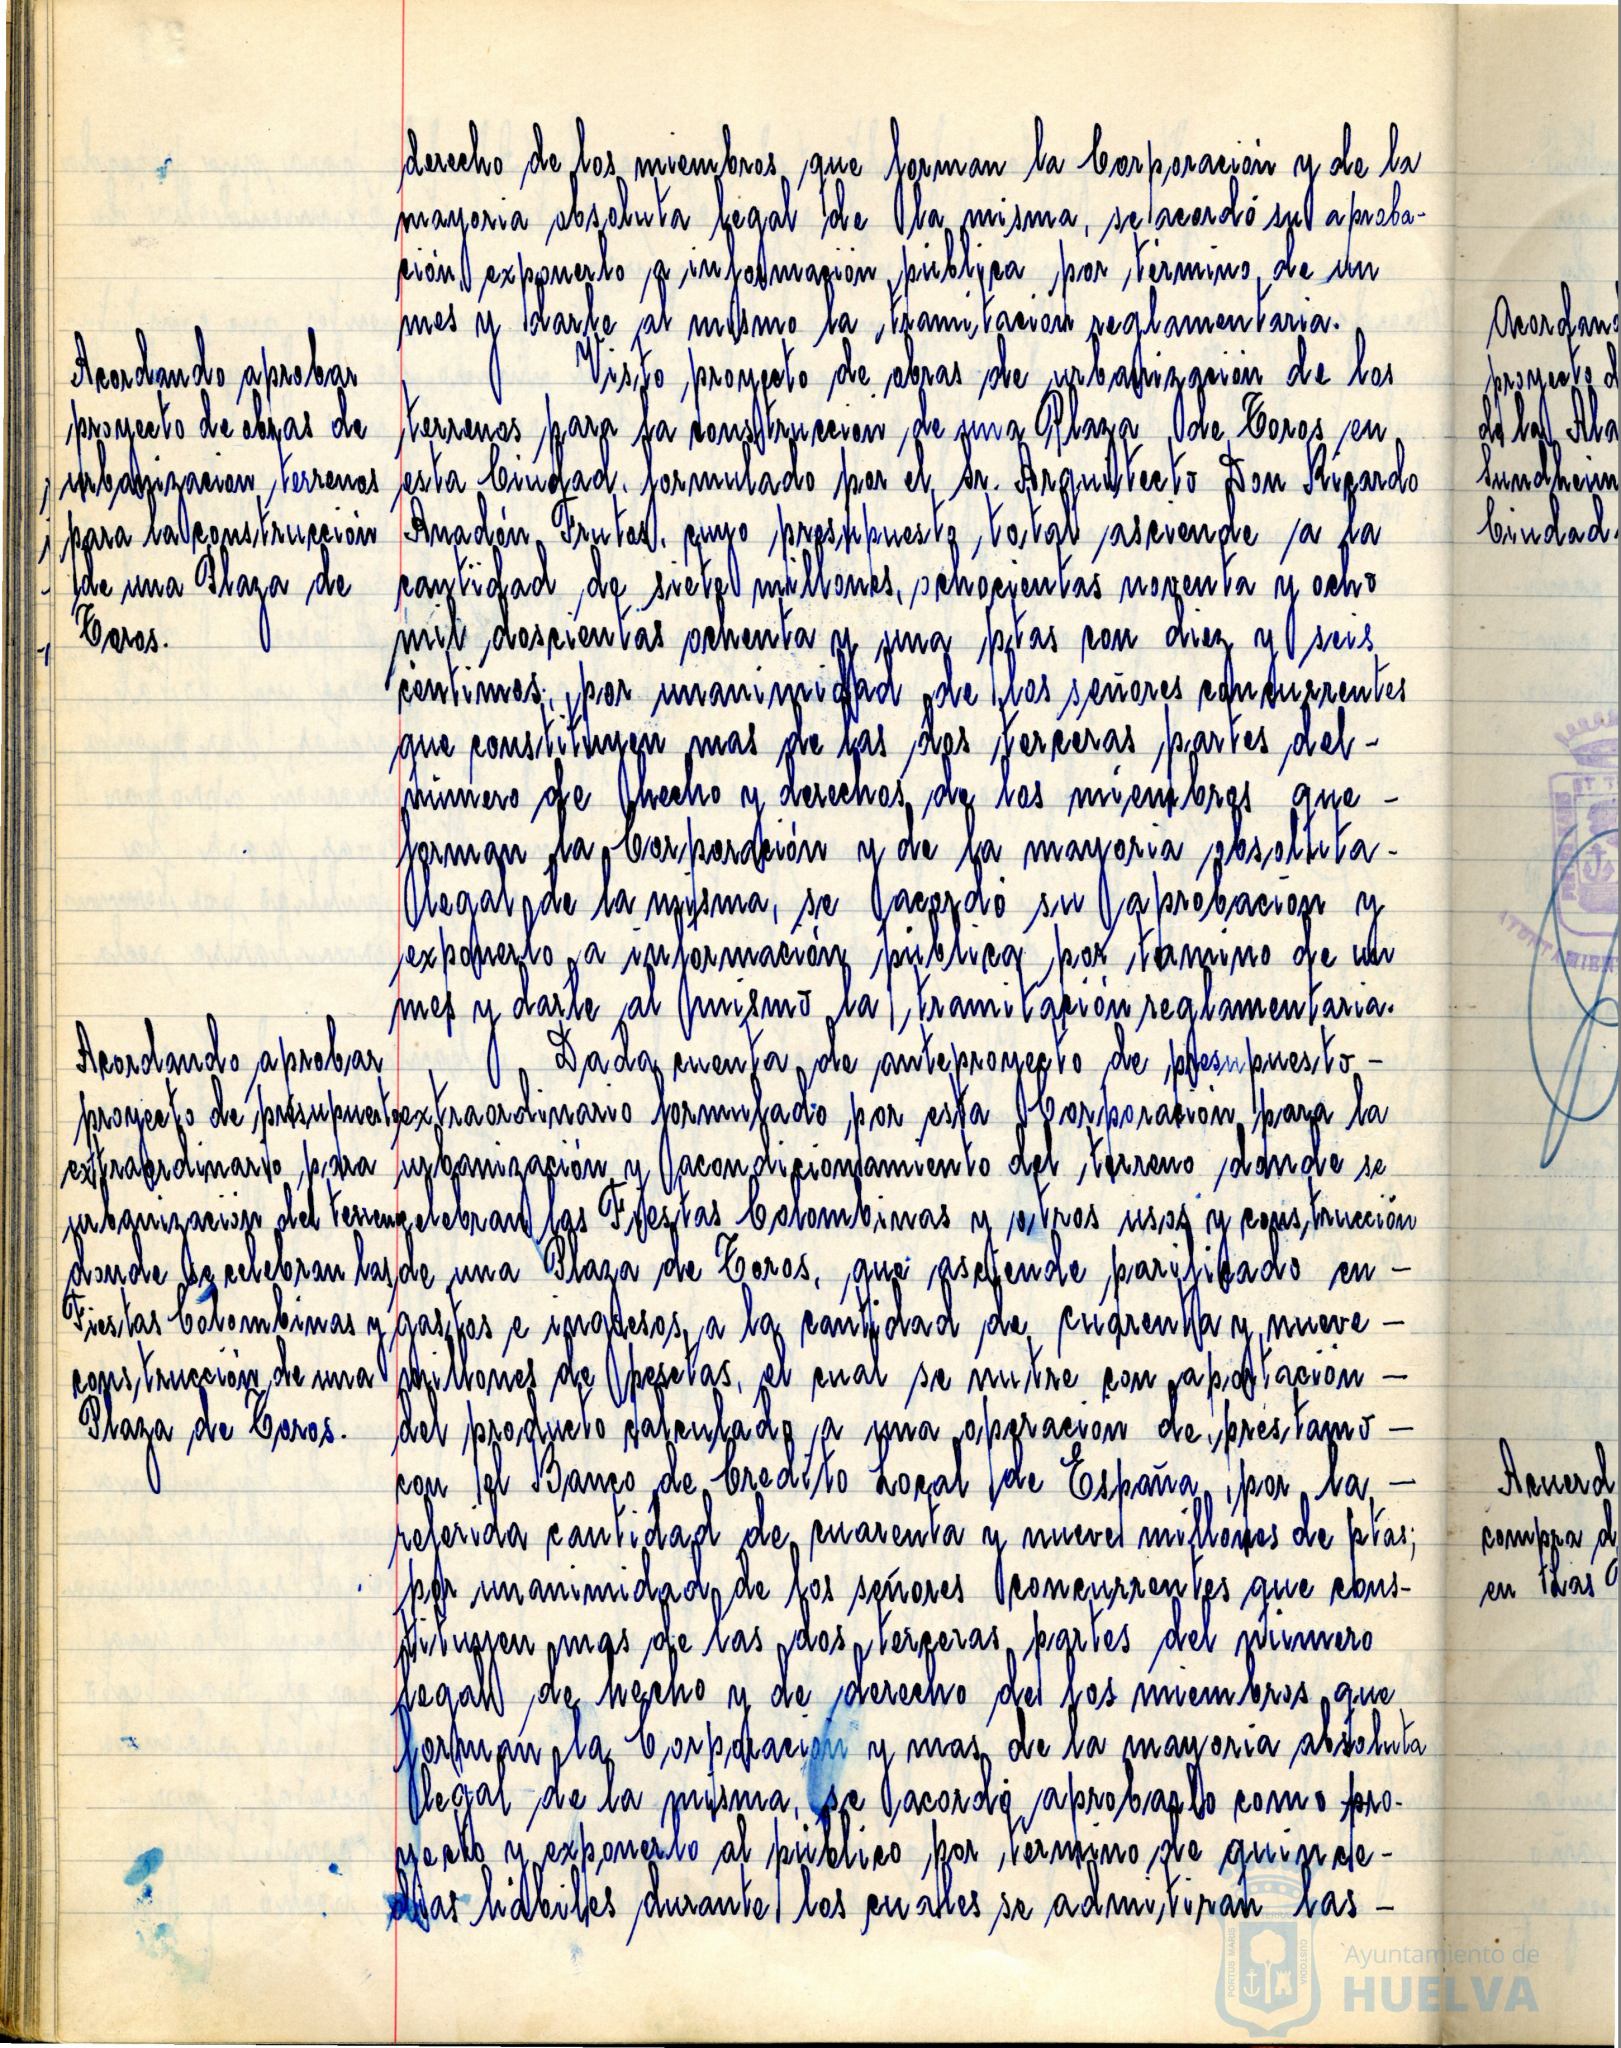 derecho de los miembros que forman la Corporación y de la
mayoria absoluta legal de la misma, se acordó su aproba-
ción exponerlo a información pública por término de un
mes y darle al mismo la tramitación reglamentaria.
Acordando aprobar
proyecto de obras de
urbanización terrenos
para la construcción
de una Plaza de
Toros.
Visto proyecto de obras de urbanización de los
terrenos para la construcción de una Plaza de Toros en
esta Ciudad, formulado por el Sr. Arquitecto Don Ricardo
Anadón Frutos, cuyo presupuesto total asciende a la
cantidad de siete millones, ochocientas noventa y ocho
mil doscientas ochenta y una ptas con diez y seis
centimos; por unanimidad de los señores concurrentes
que constituyen mas de las dos terceras partes del -
número de hecho y derechos de los miembros que -
forman la Corporación y de la mayoria absoluta -
legal de la misma, se acordó su aprobación y
exponerlo a información pública por termino de un
mes y darle al mismo la tramitación reglamentaria.
Acordando aprobar
proyecto de presupuesto
extraordinario para
urbanización del terreno
donde se celebran las
Fiestas Colombinas y
construcción de una
Plaza de Toros.
Dada cuenta de anteproyecto de presupuesto -
extraordinario formulado por esta Corporación para la
urbanización y acondicionamiento del terreno donde se
celebran las Fiestas Colombinas y otros usos y construcción
de una Plaza de Toros, que asciende parificado en -
gastos e ingresos a la cantidad de cuarenta y nueve -
millones de pesetas, el cual se nutre con aportación -
del producto calculado a una operación de préstamo -
con el Banco de Crédito Local de España, por la -
referida cantidad de cuarenta y nueve millones de ptas;
por unanimidad de los señores concurrentes que cons-
tituyen mas de las dos terceras partes del número
legal de hecho y de derecho de los miembros que
forman la Corporación y mas de la mayoria absoluta
legal de la misma, se acordó aprobarlo como pro-
yecto y exponerlo al público por termino de quince -
dias hábiles durante los cuales se admitiran las -
Acordan
proyecto d
de la Ala
Sundheim
Ciudad.
Acuerd
compra d
en las
Ayuntamiento de
HUELVA